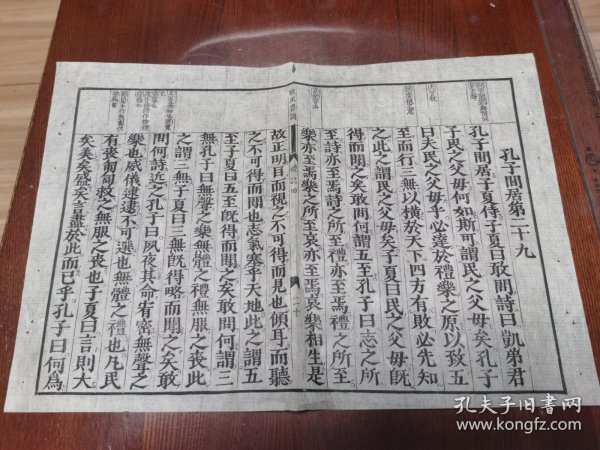 孔子閒居第二十九
孔子閒居子夏侍子夏曰敢問詩曰凱弟君
子民之父母何如斯可謂民之父母矣孔子
曰夫民之父母乎必達於禮樂之原以致五
至而行三無以橫於天下四方有敗必先知
之此之謂民之父母矣子夏曰民之父母旣
得而聞之矣敢問何謂五至孔子曰志之所
至詩亦至焉詩之所至禮亦至焉禮之所至
樂亦至焉樂之所至哀亦至焉哀樂相生是
故正明目而視之不可得而見也傾耳而聽
之不可得而聞也志氣塞乎天地此之謂五
至子夏曰五至旣得而聞之矣敢問何謂三
無孔子曰無聲之樂無體之禮無服之喪此
之謂三無子夏曰三無旣得略而聞之矣敢
問何詩近之孔子曰夙夜其命宥密無聲之
樂也威儀逮逮不可選也無體之禮也凡民
有喪匍匐救之無服之喪也子夏曰言則大
矣美矣盛矣言盡於此而已乎孔子曰何爲
孔夫子旧书网
www.kongfz.com